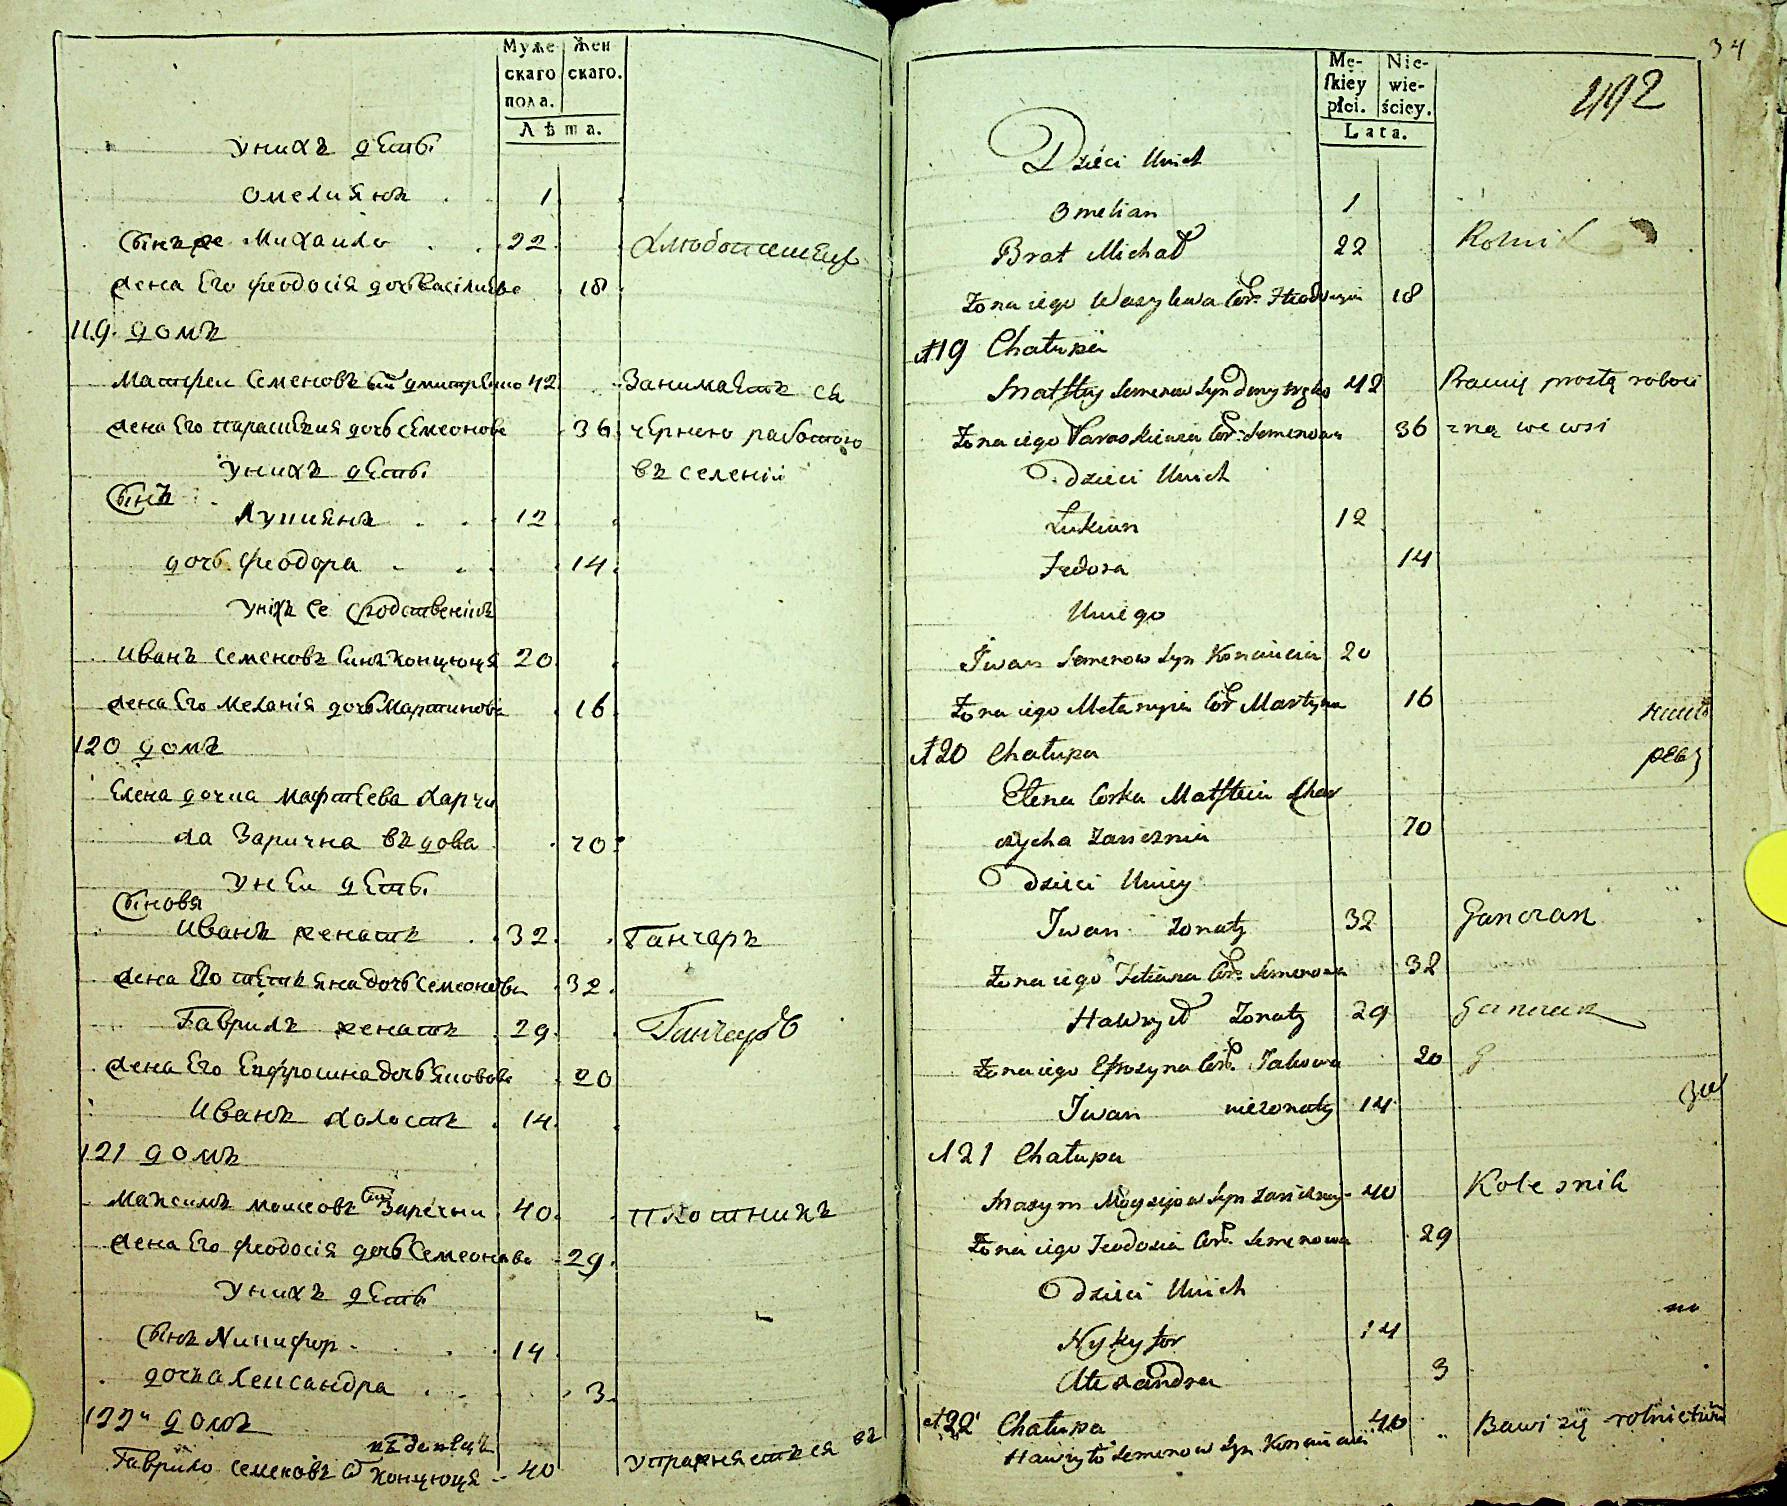 Муже
скаго
пола.
Жен
скаго.
Лѣта.
унихъ дѣтѣ
Омелиянъ 1
Сынъ же Михайло 22
жена Его феодосія дочь Василиева 18
119. домъ
Матфеи Семеновъ сынъ дмитришно 42 Занимаетъ ся
жена Его параскевия дочь Семеонова 36 чернею работою
унихъ дѣтѣ въ селеніи
Сынъ
Лукиянъ 12
дочь феодора 14
уніхъ же сродственікъ
Иванъ семеновъ Синъ концюця 20
жена Его Меланія дочь Мартинова 16
120 домъ
Елена дочка Мафтеева Харчи
ха Зарична вдова 70
унеи дѣтѣ
Сыновя
Иванъ женатъ 32 Ганчаръ
жена Его татияна дочь Семеонова 32
Гаврилъ женатъ 29 Ганчаръ
жена Его Ефросина дочь Яковова 20
Иванъ холостъ 14
121 домъ
Максимъ моисеовъ Синъ Заречни 40 плотникъ
жена Его феодосія дочь Семеонова 29
унихъ дѣтѣ
Сынъ Никифор 14
дочь александра 3
122 домъ
Гаврило семеновъ концюця 40 упражняется въ
34
492
Mę-
skiey
płci.
Nie-
wie-
ściey.
Lata.
Dzieci Unich
Omelian 1
Brat Michał 22 Rolnik
Żona iego Wasylewa Cór. Theodozia 18
119 Chałupa
Matftey Semenow Syn Dmytryszko 42 Pracuią prostą roboci
Żona iego Paraskiewia Cór. Semenowa 36 zną we wsi
Dzieci Unich
Łukian 12
Fedora 14
Uniego
Iwan Semenow Syn Konciucia 20
Żona iego Mełanyia Cór Martyna 16
120 Chałupa
Ełena Corka Matfteia Char
czycha Zaricznia 70
Dzieci Uniey
Iwan żonaty 32 Ganczarz
Żona iego Tetiana Cór. Semenowa 32
Hawrył Żonaty 29 Ganczarz
Żona iego Efrozyna Cór. Jakowa 20
Iwan nieżonaty 14
121 Chałupa
Maxym Moyzejow Syn Zariczny 40 Kołesnik
Żona iego Teodozia Cór. Semenowa 29
Dzieci Unich
Nykyfor 14
Alexandra 3
122 Chałupa
Hawryło Semenow Syn Konciucia 40 Bawi się rolnictwem